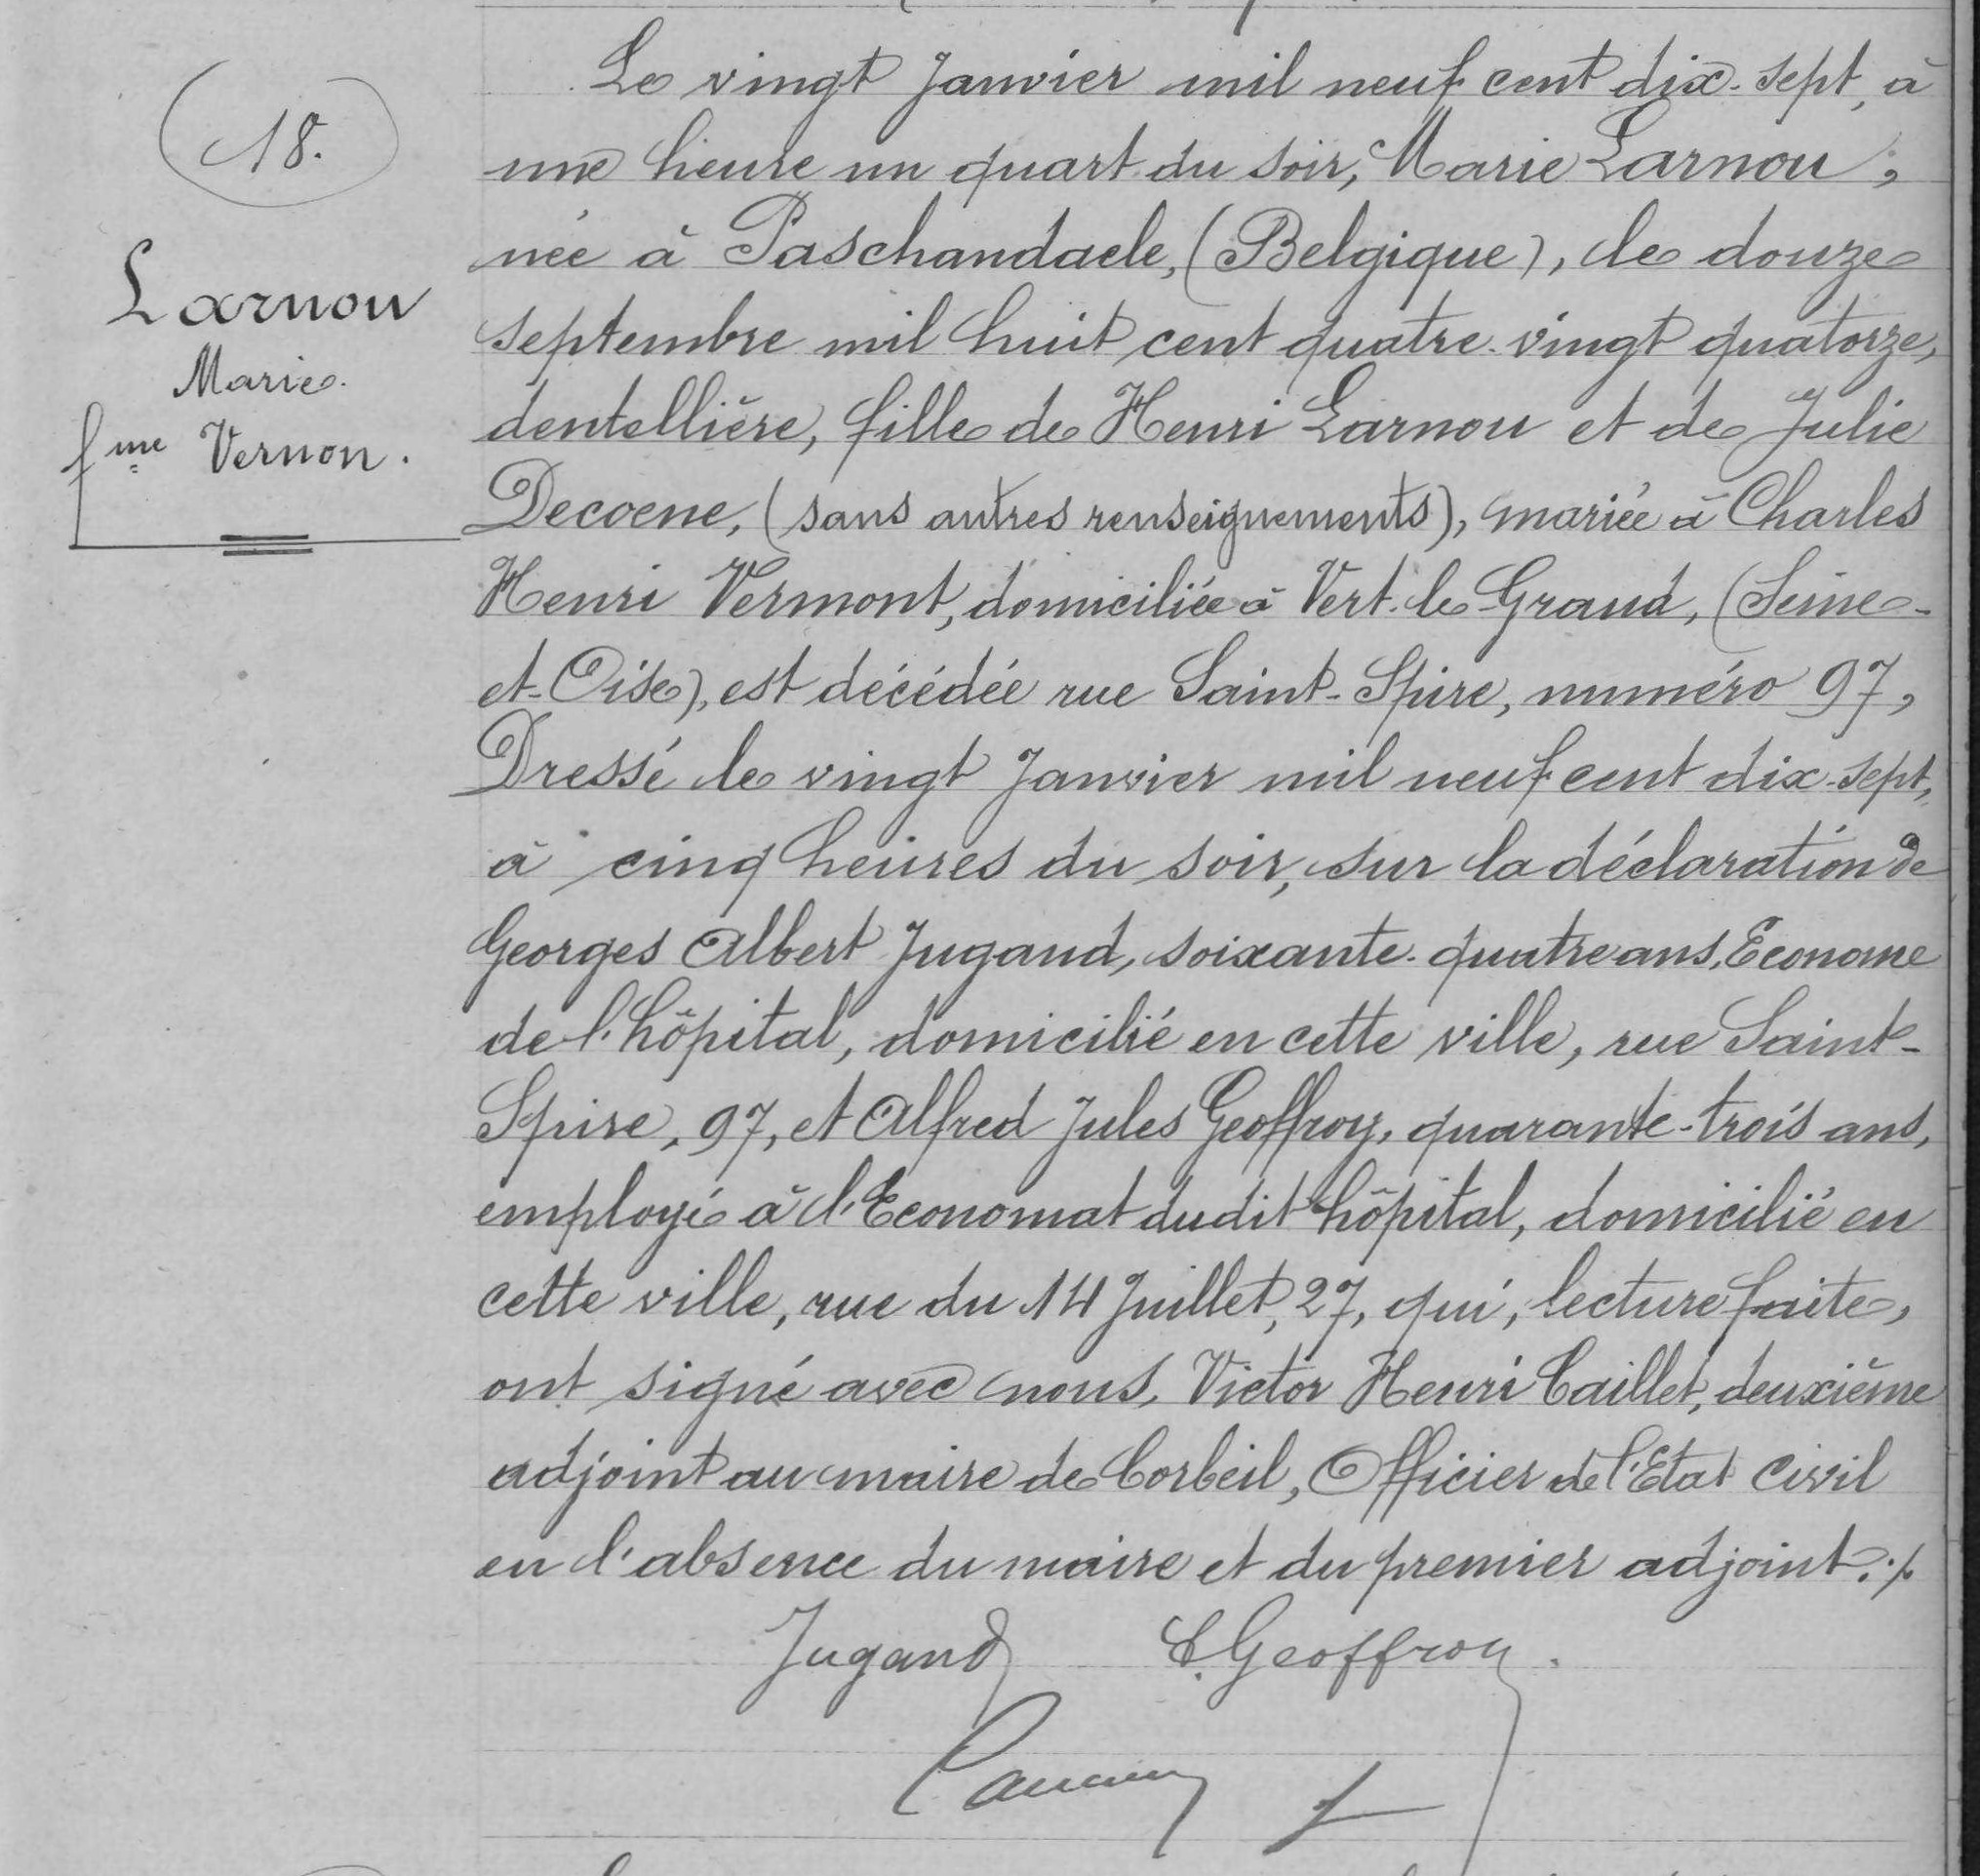 18.
Larnou
Marie.
fme Vernon.
Le vingt Janvier mil neuf cent dix-sept, à
une heure un quart du soir, Marie Larnou,
née à Paschandaele, (Belgique), le douze
septembre mil huit cent quatre-vingt quatorze,
dentellière, fille de Henri Larnou et de Julie
Decoene, (sans autres renseignements), mariée à Charles
Henri Vermont, domiciliée à Vert-le-Grand, (Seine-
et-Oise), est décédée rue Saint-Spire, numéro 97,
Dressé le vingt Janvier mil neuf cent dix-sept,
à cinq heures du soir, sur la déclaration de
Georges Albert Jugand, soixante-quatre ans, Econome
de l'hôpital, domicilié en cette ville, rue Saint-
Spire, 97, et Alfred Jules Geoffroy, quarante-trois ans,
employé à l'Economat dudit hôpital, domicilié en
cette ville, rue du 14 Juillet, 27, qui, lecture faite,
ont signé avec nous, Victor Henri Caillet, deuxième
adjoint au maire de Corbeil, Officier de l'Etat civil
en l'absence du maire et du premier adjoint ./.
Jugand Geoffroy.